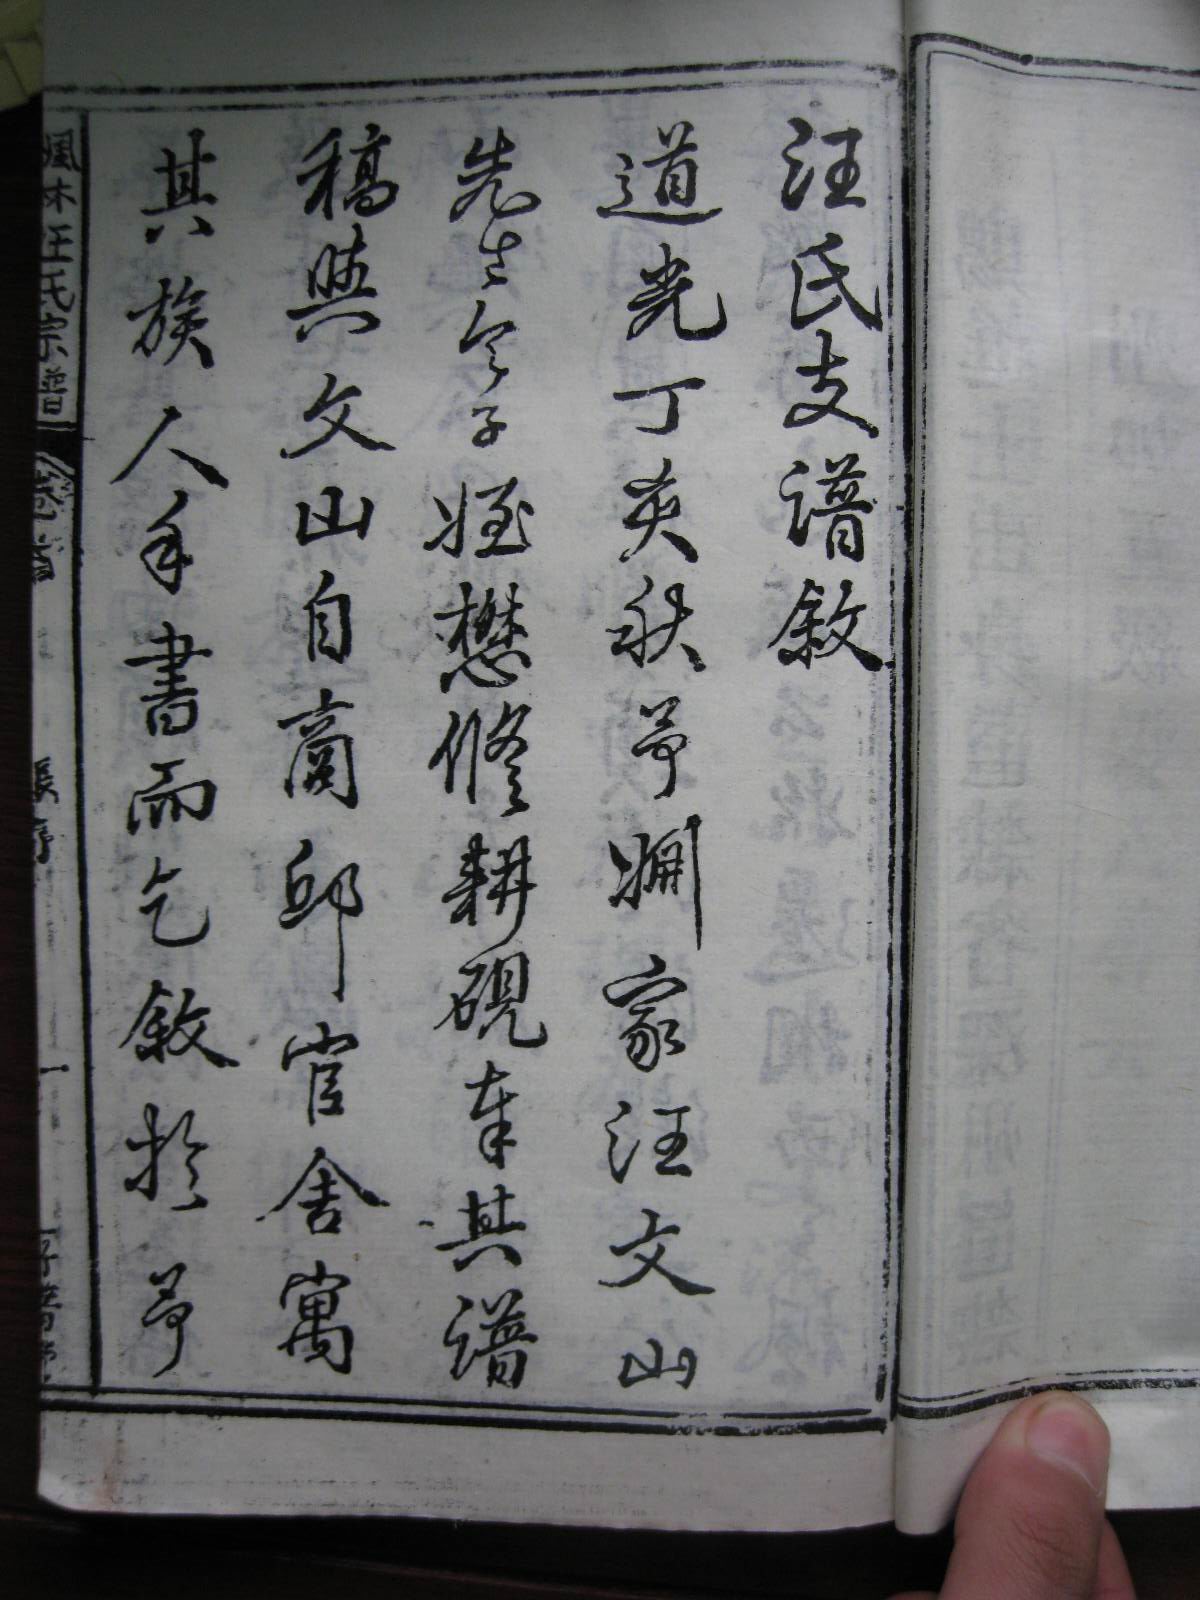 汪氏支譜敘
道光丁亥秋予婣家汪文山
先生令子姪懋修耕硯奉其譜
稿與文山自商邱官舍寓
其族人手書而乞敘於予
楓林汪氏宗譜
卷首
序
一